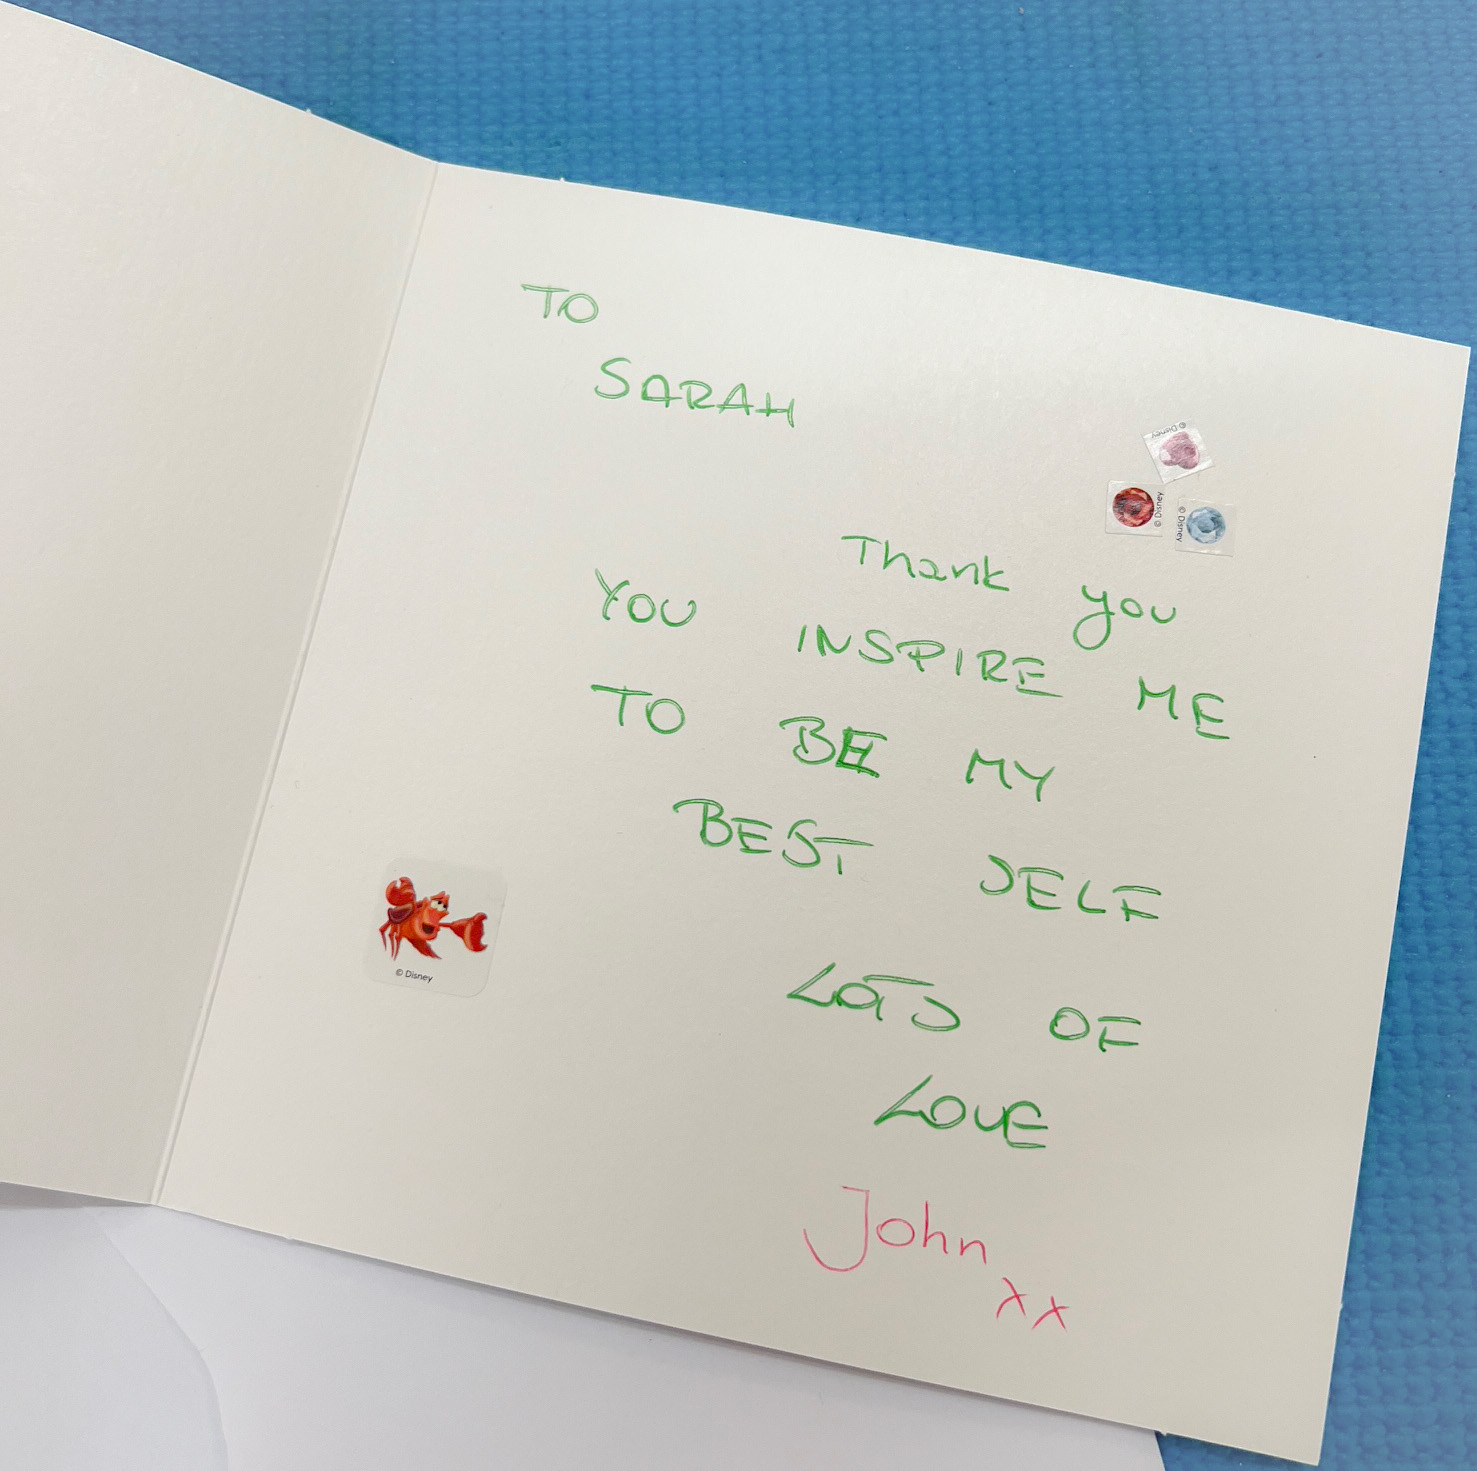 TO
SARAH
© Disney
© Disney
© Disney
Thank you
YOU INSPIRE ME
TO BE MY
BEST SELF
© Disney
LOTS OF
LOVE
John
xx